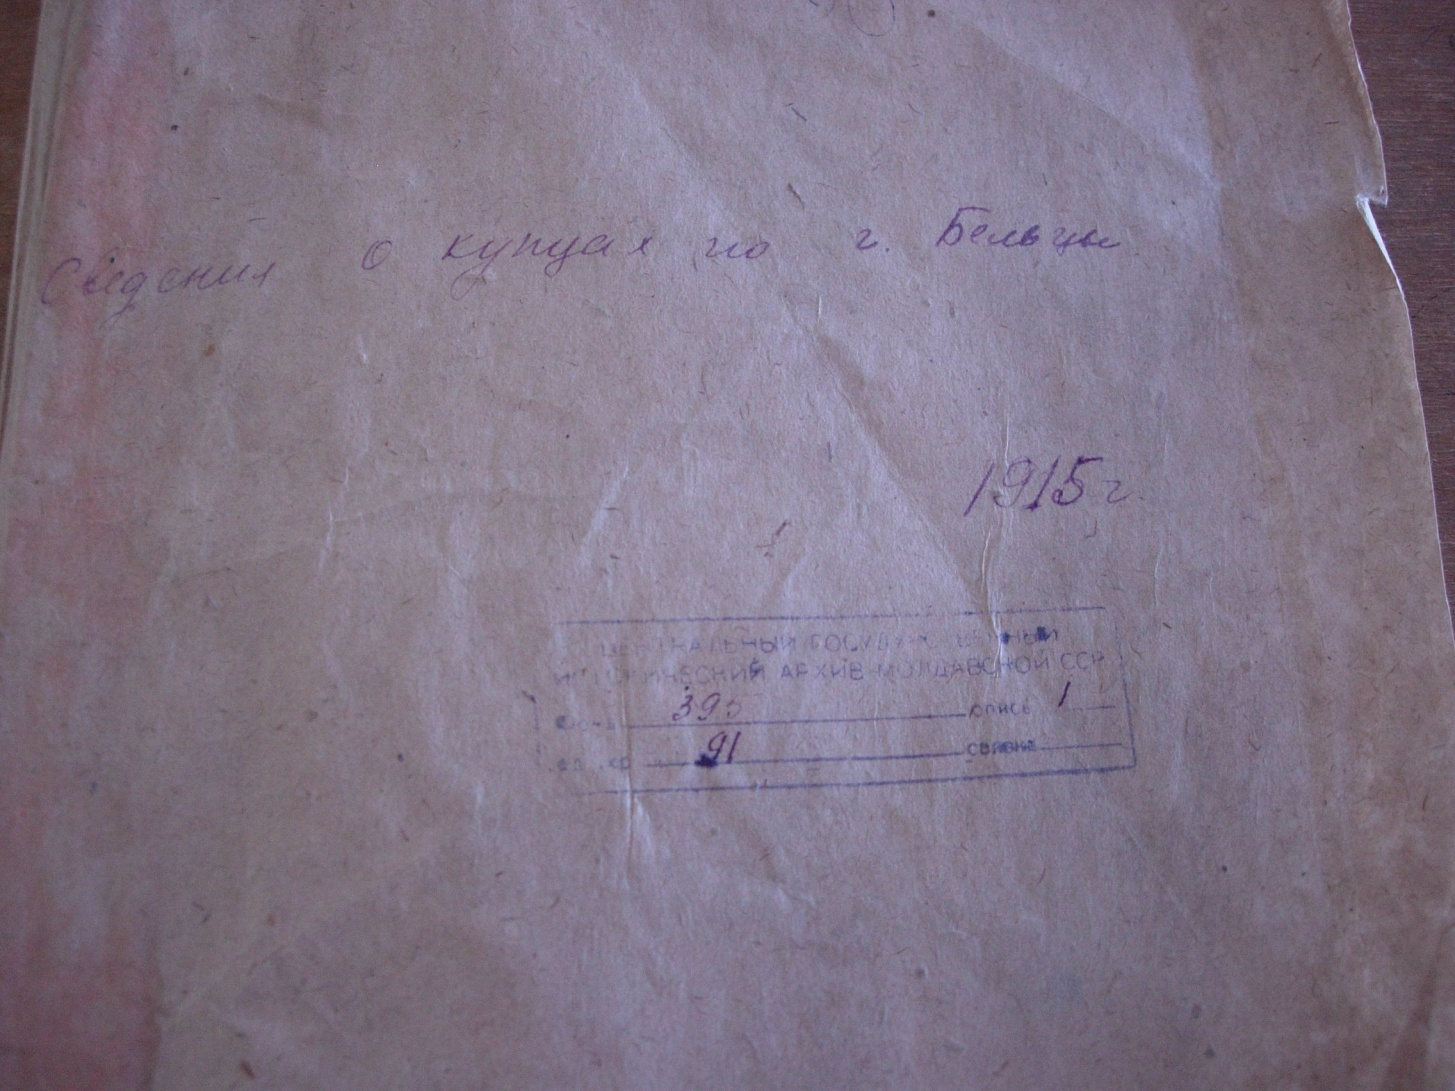 Сведения о купцах по г. Бельцы
1915 г.
ЦЕНТРАЛЬНЫЙ ГОСУДАРСТВЕННЫЙ
ИСТОРИЧЕСКИЙ АРХИВ МОЛДАВСКОЙ ССР
фонд 395 опись 1
ед. хр. 91 связка